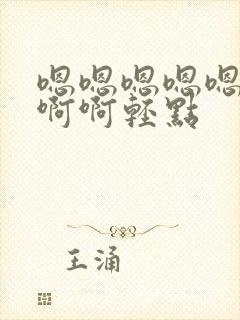 嗯嗯嗯嗯嗯
啊啊轻點
王涌